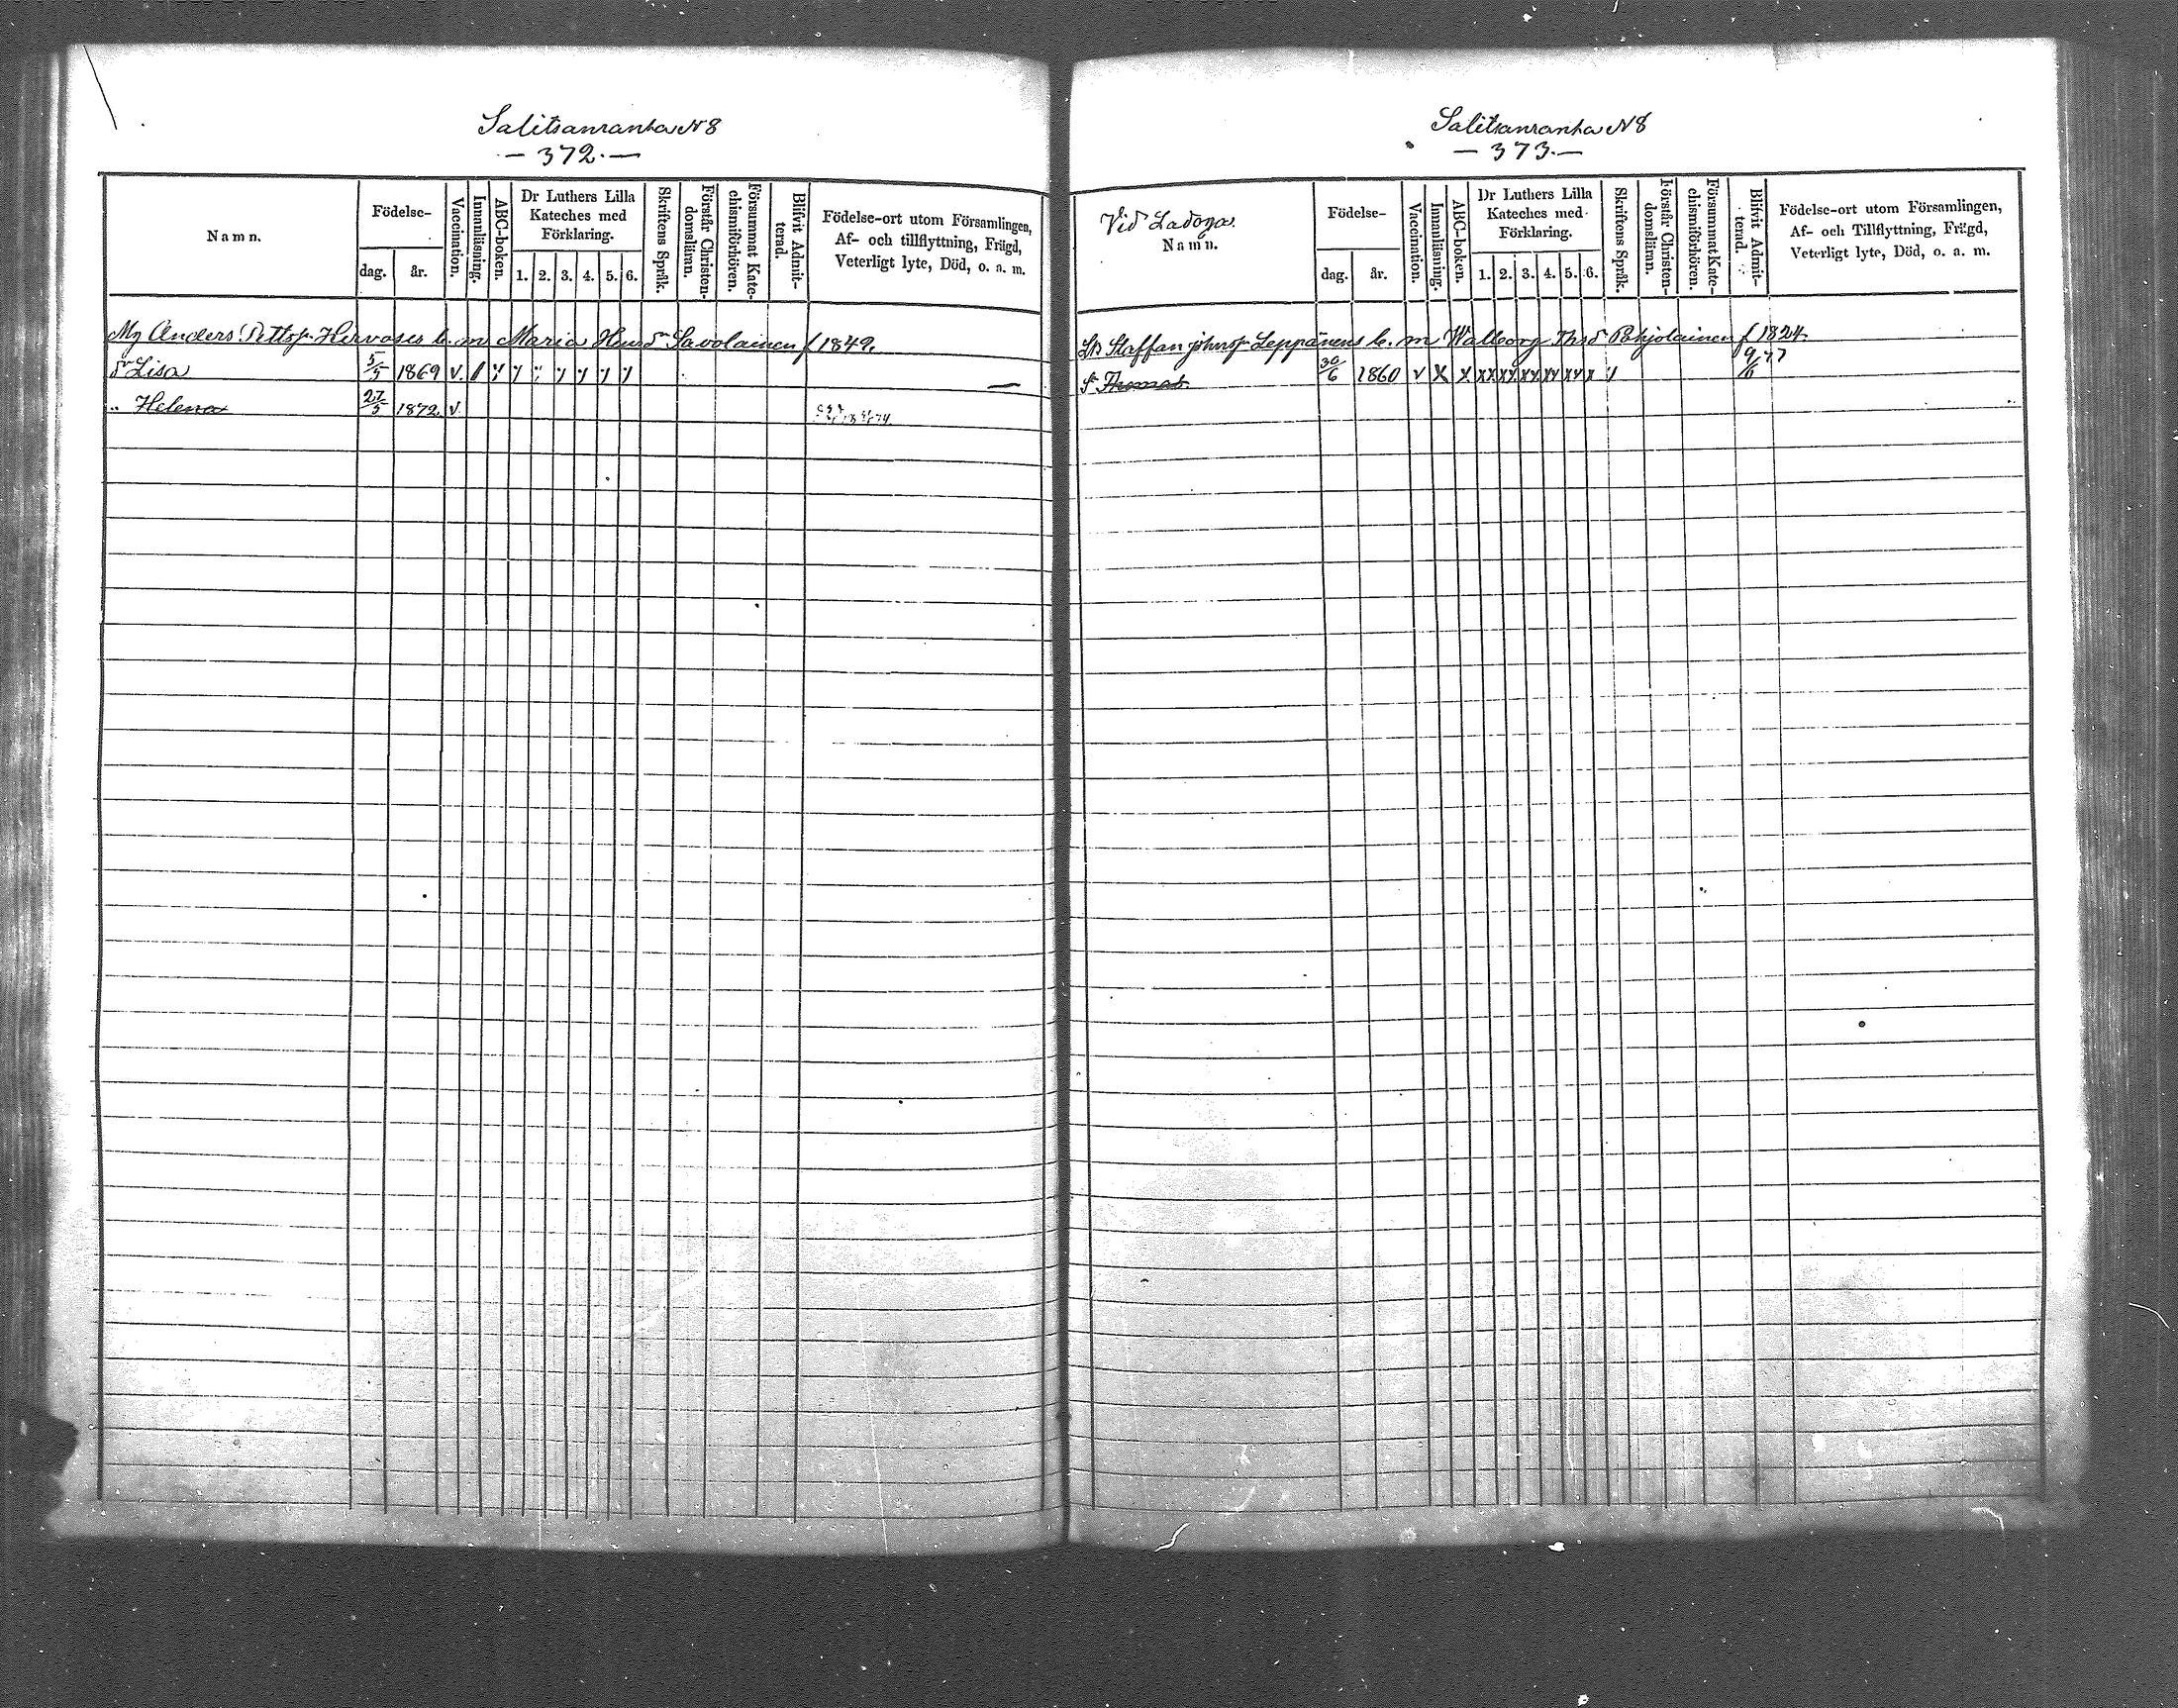 Salitsanranta N8
— 372. —
Namn.
Födelse-
dag.
år.
Vaccination.
Innanläsning.
ABC-boken.
Dr Luthers Lilla
Kateches med
Förklaring.
1. 2. 3. 4. 5. 6.
Skriftens Språk.
Förstår Christen-
domsläran.
Försummat Kate-
chismiförhören.
Blifvit Admit-
terad.
Födelse-ort utom Församlingen,
Af- och tillflyttning, Frägd,
Veterligt lyte, Död, o. a. m.
Anders Hirvoses b. m Maria Savolainen f 1842.
Dr Lisa 5/5 1869 v.
„ Helena 27/5 1872. v.
Salitsanranta N8
— 373. —
Vid Ladoga.
Namn.
Födelse-
dag.
år.
Vaccination.
Innanläsning.
ABC-boken.
Dr Luthers Lilla
Kateches med
Förklaring.
1. 2. 3. 4. 5. 6.
Skriftens Språk.
Förstår Christen-
domsläran.
Försummat Kate-
chismiförhören.
Blifvit Admit-
terad.
Födelse-ort utom Församlingen,
Af- och Tillflyttning, Frägd,
Veterligt lyte, Död, o. a. m.
Staffan Leppänens b. m Walborg Ths d Pohjolainen f 1824
S. Thomas 30/6 1860 v x x xx xx xx xx xx x